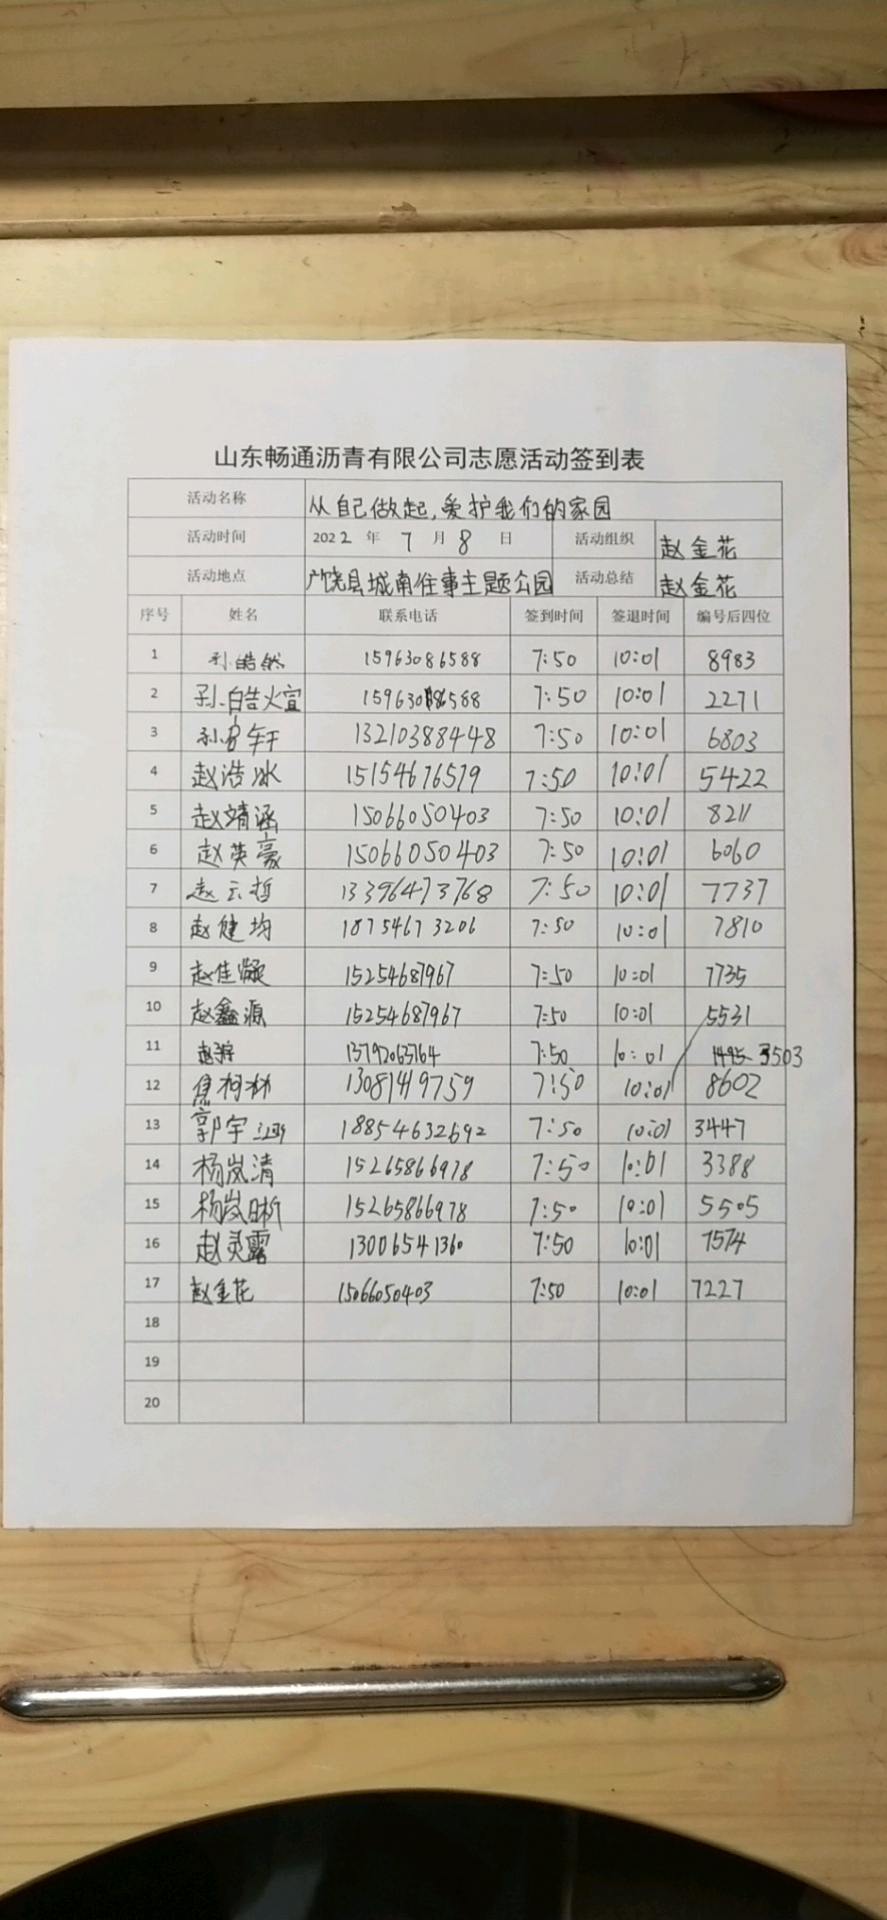 山东畅通沥青有限公司志愿活动签到表
活动名称 从自己做起,爱护我们的家园
活动时间 2022 年 7 月 8 日 活动组织 赵金花
活动地点 广饶县城南往事主题公园 活动总结 赵金花
序号 姓名 联系电话 签到时间 签退时间 编号后四位
1 孙皓然 15963086588 7:50 10:01 8983
2 孙皓煊 15963086588 7:50 10:01 2271
3 13210388448 7:50 10:01 6803
4 赵浩冰 15154676579 7:50 10:01 5422
5 赵靖涵 15066050403 7:50 10:01 8211
6 赵英豪 15066050403 7:50 10:01 6060
7 赵云哲 13396473768 7:50 10:01 7737
8 赵健均 18754673206 7:50 10:01 7810
9 赵佳凝 15254687967 7:50 10:01 7735
10 赵鑫源 15254687967 7:50 10:01 5531
11 13792063764 7:50 10:01 3503
12 焦柯林 13081419759 7:50 10:01 8602
13 郭宇 18854632692 7:50 10:01 3447
14 杨岚清 15265866978 7:50 10:01 3388
15 杨岚晰 15265866978 7:50 10:01 5505
16 赵灵露 13006541360 7:50 10:01 7574
17 赵金花 15066050403 7:50 10:01 7227
18
19
20